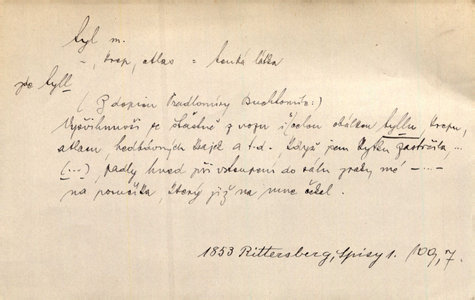 tyl m.
–, krep, atlas = tenká látka
zde tyll
(Z dopisu Kradlominy Buchlomův:)
Vyšvihnuvši se šťastně z vozu i s celou obálkou tyllu, krepu,
atlasu, hedbávných šajel a t d. když jsem kytku zastrčila, ...
(...), padly hned při vstoupení do sálu zraky mé – . –
na poručíka, který již na mne čekal.
1853 Rittersberg, Spisy 1. 109, 7.